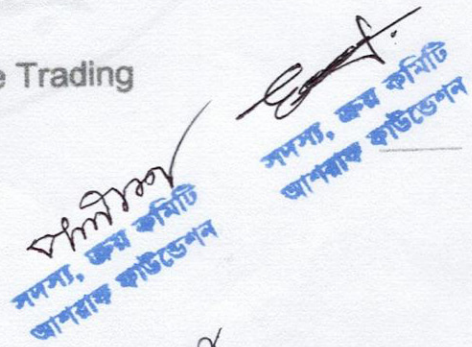 e Trading
সদস্য, ক্রয় কমিটি
আশরাফ ফাউন্ডেশন
সদস্য, ক্রয় কমিটি
আশরাফ ফাউন্ডেশন